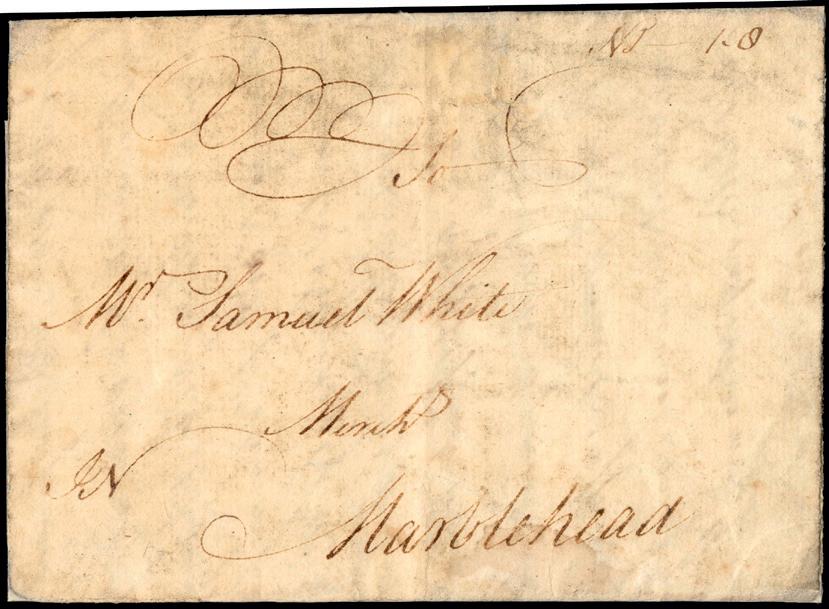 No 1-8
To
Mr. Samuel White
Mercht
IN
Marblehead